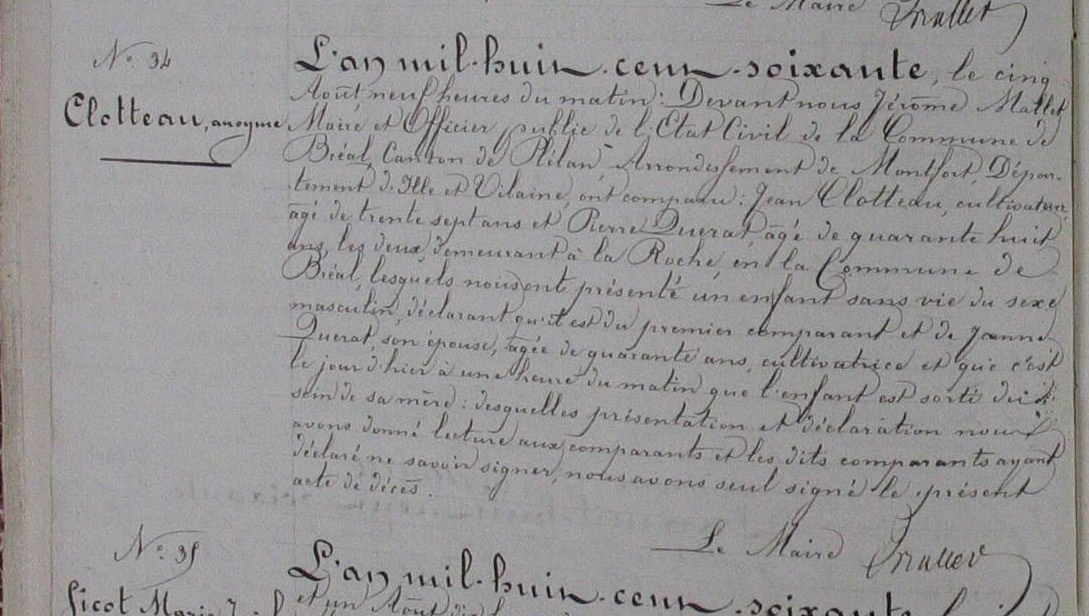 Le Maire Mallet
N.o 34
Clotteau, anonyme
L'an mil-huit-cent-soixante, le cinq
Août neuf heures du matin : Devant nous Jérôme Mallet
Maire et Officier public de l'Etat Civil de la Commune de
Bréal, Canton de Plélan, Arrondissement de Montfort, Dépar-
tement d'Ille et Vilaine, ont comparu : Jean Clotteau, cultivateur,
âgé de trente sept ans et Pierre Querat, âgé de quarante huit
ans, les deux demeurant à la Roche, en la Commune de
Bréal, lesquels nous ont présenté un enfant sans vie du sexe
masculin, déclarant qu'il est du premier comparant et de Jeanne
Querat, son épouse, âgée de quarante ans, cultivatrice et que c'est
le jour d'hier à une heure du matin que l'enfant est sorti du
sein de sa mère : desquelles présentation et déclaration nous
avons donné lecture aux comparants et les dits comparants ayant
déclaré ne savoir signer, nous avons seul signé le présent
acte de décès.
Le Maire Mallet
N.o 35
L'an mil-huit-cent-soixante
Sicot Marie
et un Août